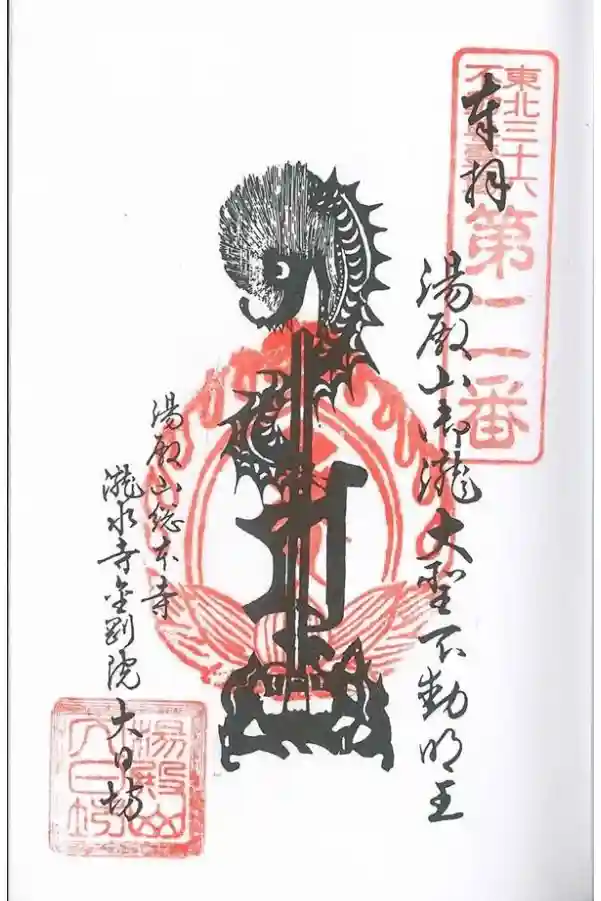 東北三十六
不動尊霊場
第二番
奉拝
湯殿山御瀧大聖不動明王
湯殿山総本寺
瀧水寺金剛院 大日坊
湯殿山
大日坊